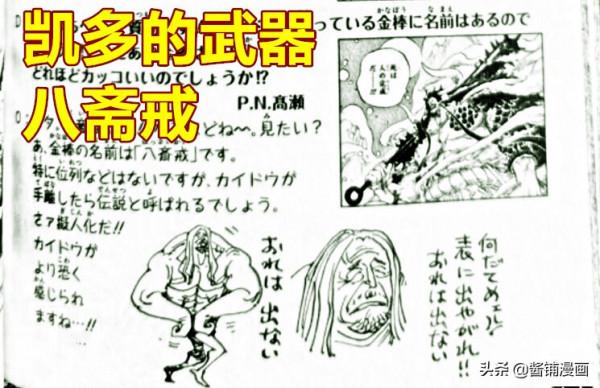 凯多的武器
八斋戒
っている金棒に名前はあるので
どれほどカッコいいのでしょうか!?
P.N.髙瀬
どね〜。見たい?
あ、金棒の名前は「八斎戒」です。
特に位列などはないですが、カイドウが
手離したら伝説と呼ばれるでしょう。
さァ擬人化だ!!
カイドウが
より恐く
感じられ
ますね…!!
おれは出ない
何だてめェは
表に出やがれ!!
おれは出ない
頭条 @酱铺漫画